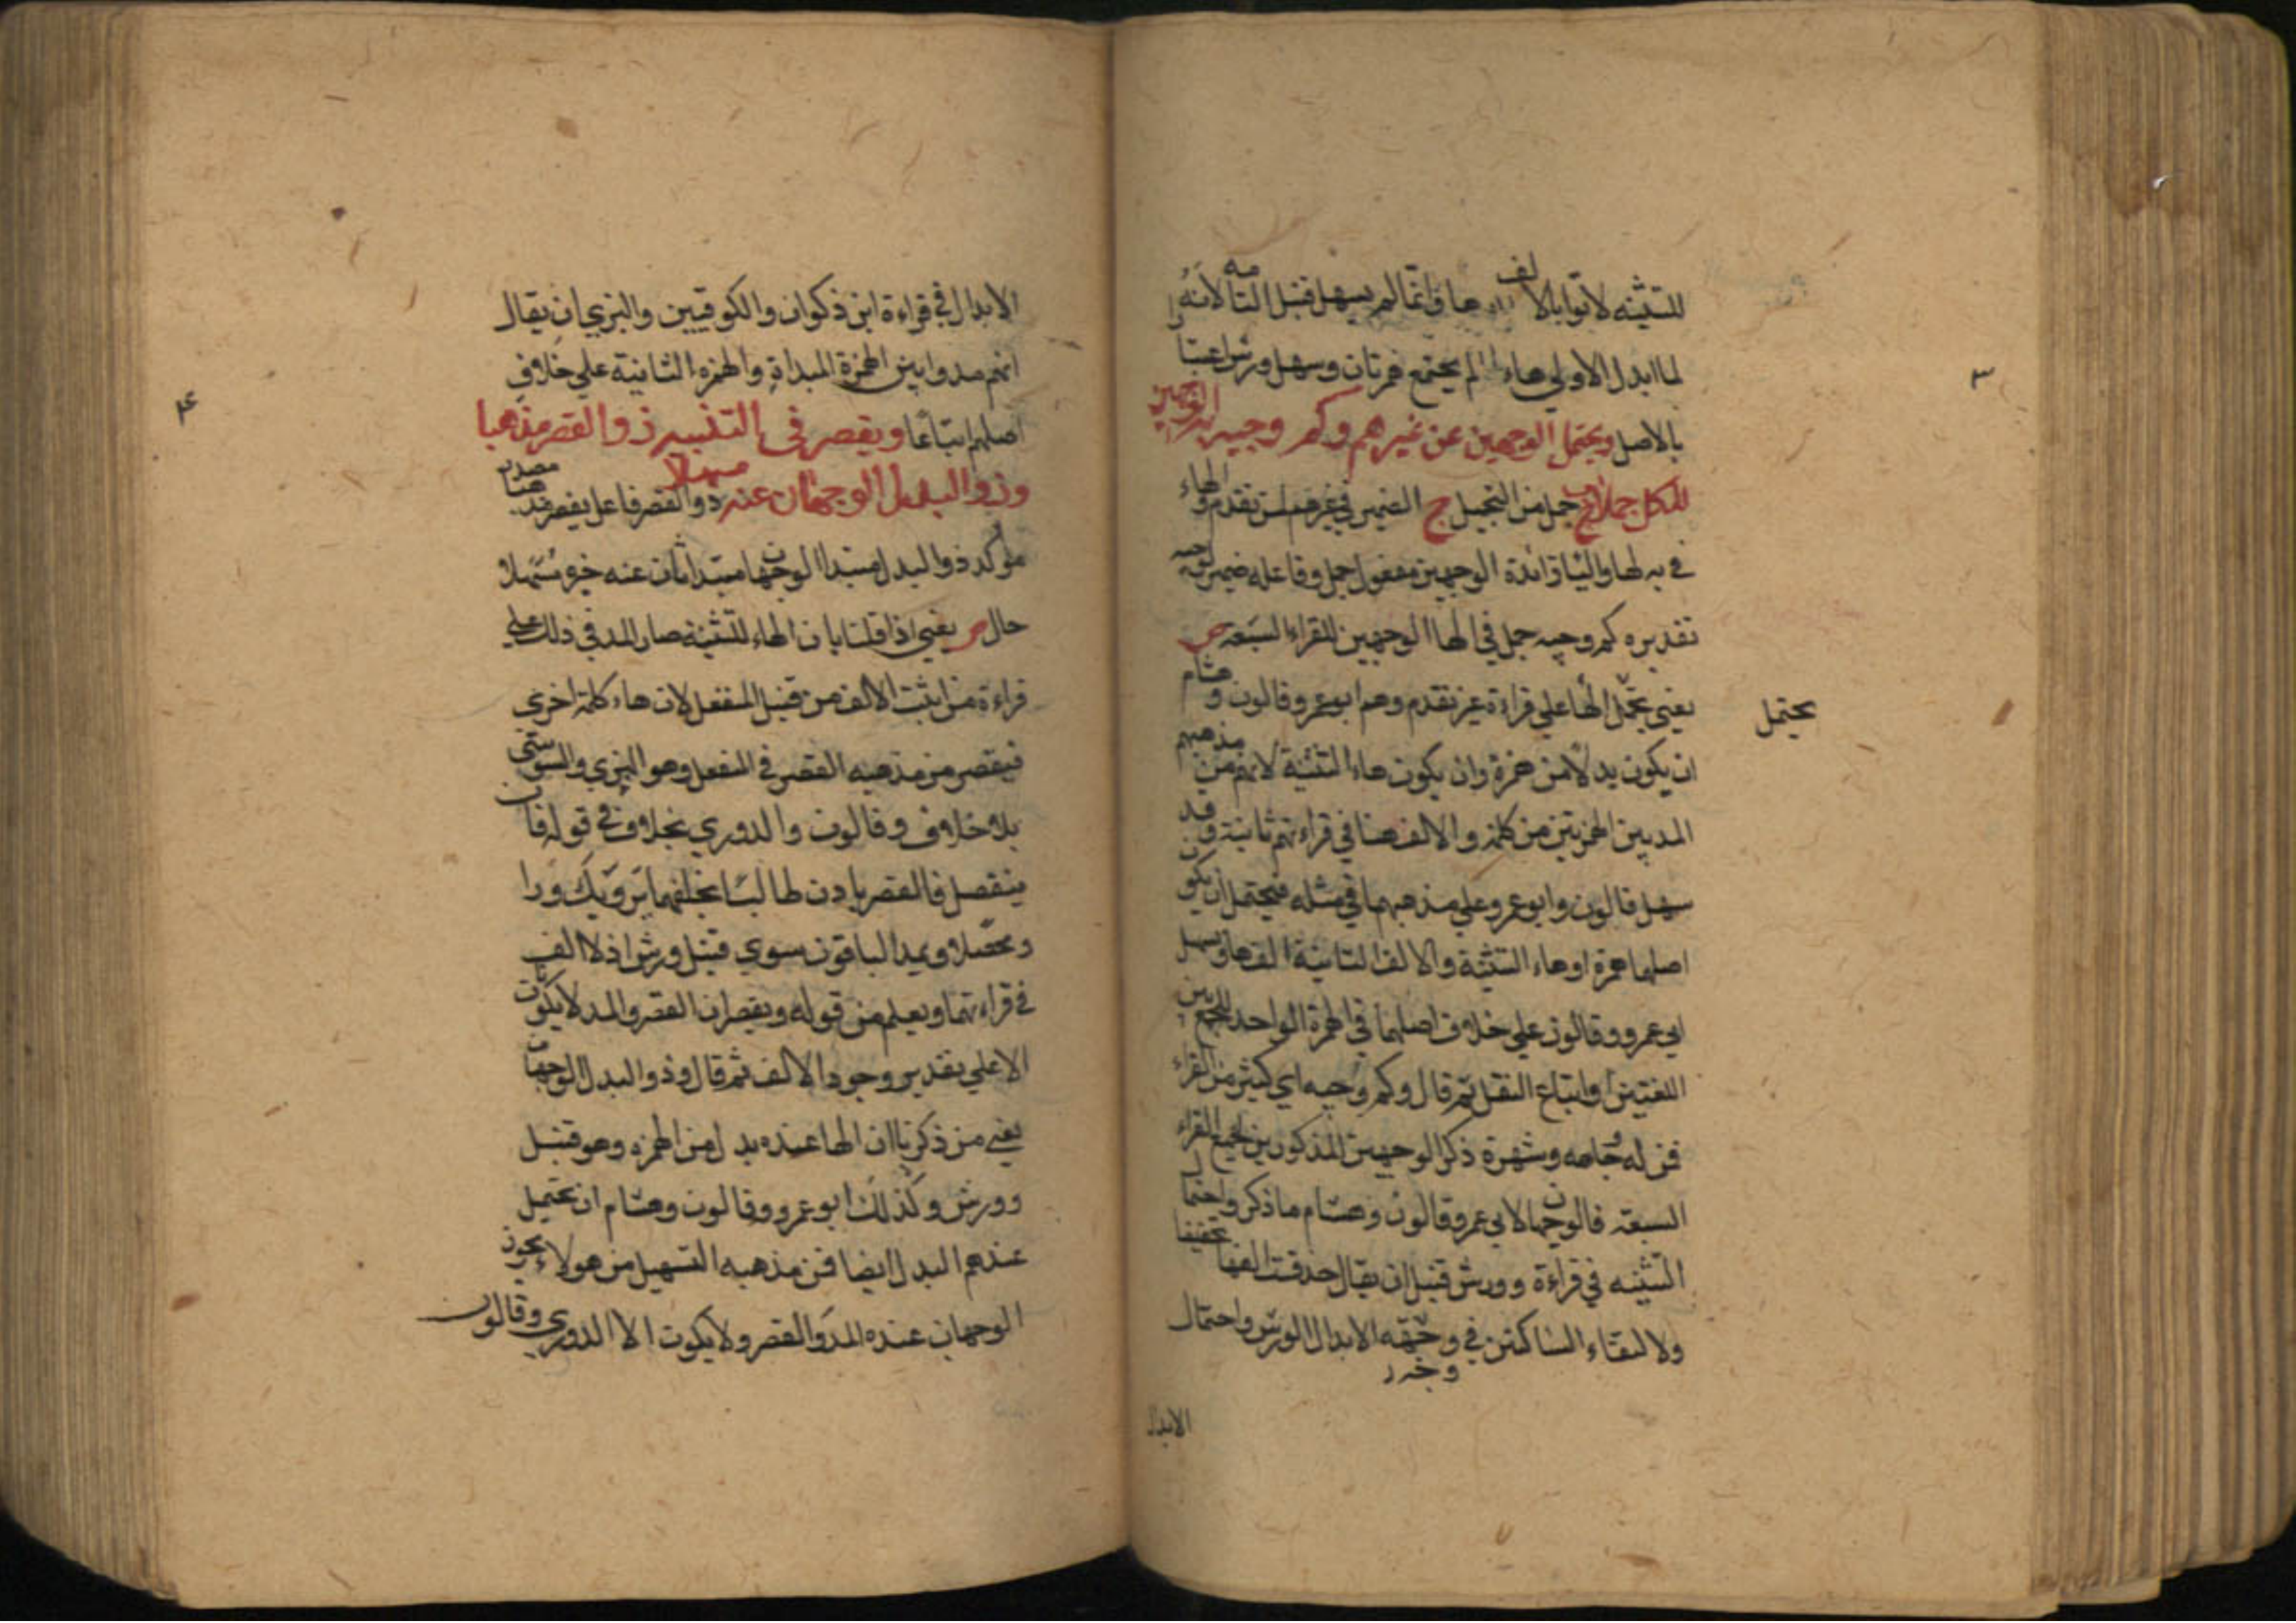 للتثنيه لاتوا بالالف بعدها وانما لم يسهل قنبل الثانيه لانه
لما ابدل الاولي هاء لم يجتمع همزتان وسهل ورش اعتبارا
بالاصل ويحتمل الوجهين عن غيرهم وكم وجيه به الوجهين
للكل جملا ح جمل من التجميل ج الضمير في غيرهم لمن تقدم والهاء
في به لها والباء زائدة الوجهين مفعول جمل وفاعله ضمير لوجيه
تقديره كم وجيه جمل في الها الوجهين للقراء السبعه ص
يعني يحتمل الها علي قراءة غير من تقدم وهم ابو عمرو وقالون وهشام
يحتمل
ان يكون بدلا من همزة وان يكون هاء التنثية لانهم من مذهبهم
المد بين الهمزتين من كلمة والالف هنا في قراءتهم ثابتة وقد
سهل قالون وابو عمرو علي مذهبهما في مثله فيحتمل ان يكون
اصلها همزة اوهاء التنثية والالف الثانية الف ها وسهل
ابي عمرو وقالون علي خلاف اصلهما في الهمزة الواحد للجمع بين
اللغتين او اتباع النقل ثم قال وكم وجيه اي كثير من القراء
فمن له جاهه وشهرة ذكر الوجهين المذكورين لجميع القراء
السبعة فالوجهان لابي عمرو وقالون وهشام ما ذكر واحتمال
التثنيه في قراءة وورش قنبل ان يقال حذفت الفها تخفيفا
ولا لتقاء الساكنين في وجهه الابدال لورش واحتمال
وجه
الابدال
٣
الابدال في قراءة ابن ذكوان والكوفيين والبزي ان يقال
انهم مدوا بين الهمزة المبدلة والهمزه الثانية علي خلاف
اصلهم اتباعا ويقصر في التنبيه ذو القصر مذهبا
وذو البدل الوجهان عنه مسهلا ذو القصر فاعل يقصر مذهبا مصدر
مؤكد ذو البدل مبتدا الوجهان مبتدا ثان عنه خبره مسهلا
حال ص يعني اذا قلنا بان الهاء للتنثية صار المد في ذلك علي
قراءة من اثبت الالف من قبيل المنفصل لان هاء كلمة اخري
فيقصر من مذهبه القصر في المنفصل وهو البزي والسوسي
بلا خلاف وقالون والدوري بخلاف في قوله فان
ينفصل فالقصر بادره طالبا بخلفهما يرويك درا
ومخضلا ويمد الباقون سوي قنبل ورش اذ لا الف
في قراءتهما ويعلم من قوله ويقصر ان القصر والمد لا يكونان
الا علي تقدير وجود الالف ثم قال وذو البدل الوجهان
يعني من ذكرنا ان الها عنده بدل من الهمزه وهو قنبل
وورش وكذلك ابو عمرو وقالون وهشام ان تحتمل
عندهم البدل ايضا فمن مذهبه التسهيل من هولاء يجوز
الوجهان عنده المد والقصر ولا يكون الا الدوري وقالون
٤